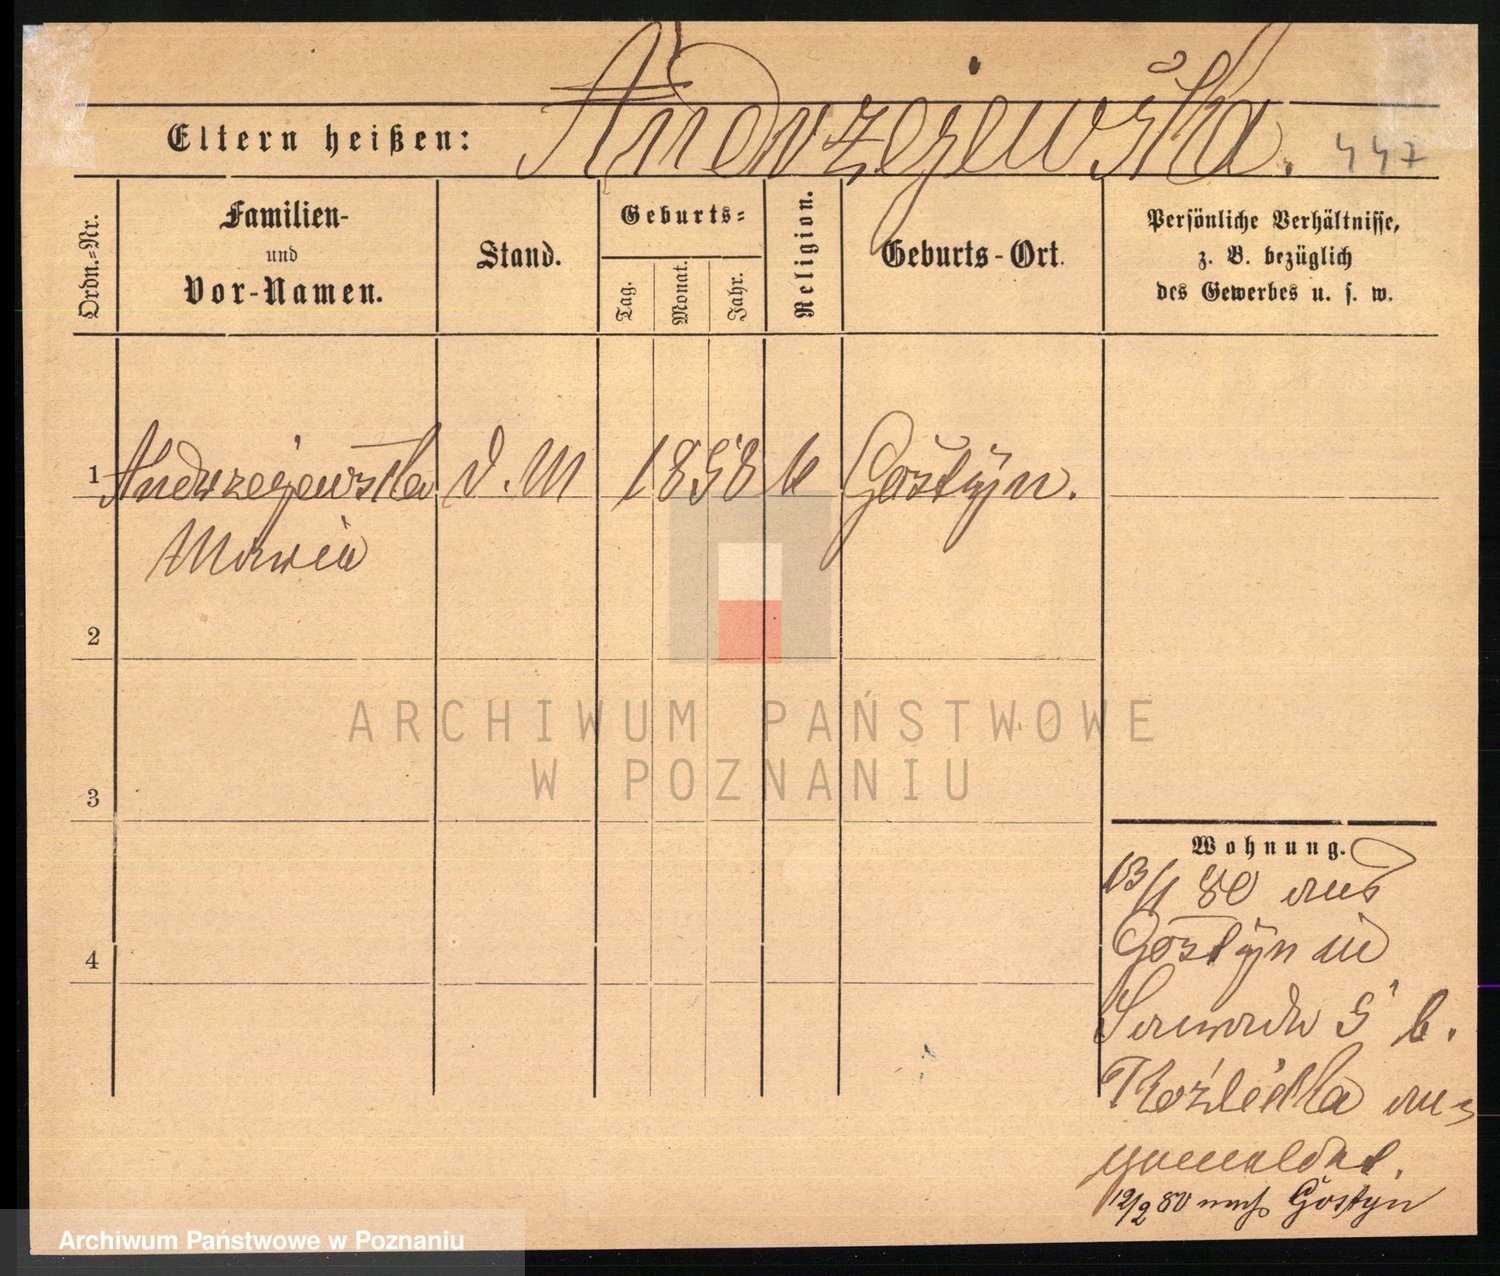 Andrzejewska.
Eltern heißen: 447
Ordn.-Nr.
Familien-
und
Vor-Namen.
Stand.
Geburts-
Tag.
Monat.
Jahr.
Religion.
Geburts-Ort.
Persönliche Verhältnisse,
z. B. bezüglich
des Gewerbes u. s. w.
1 Andrzejewska d. M 1858 k Gostÿn.
Maria
2
3
4
ARCHIWUM PAŃSTWOWE
W POZNANIU
Wohnung.
13/1 80 aus
Gostÿn in
5 b.
an-
gemeldet.
12/2 80 nach Gostÿn
Archiwum Państwowe w Poznaniu